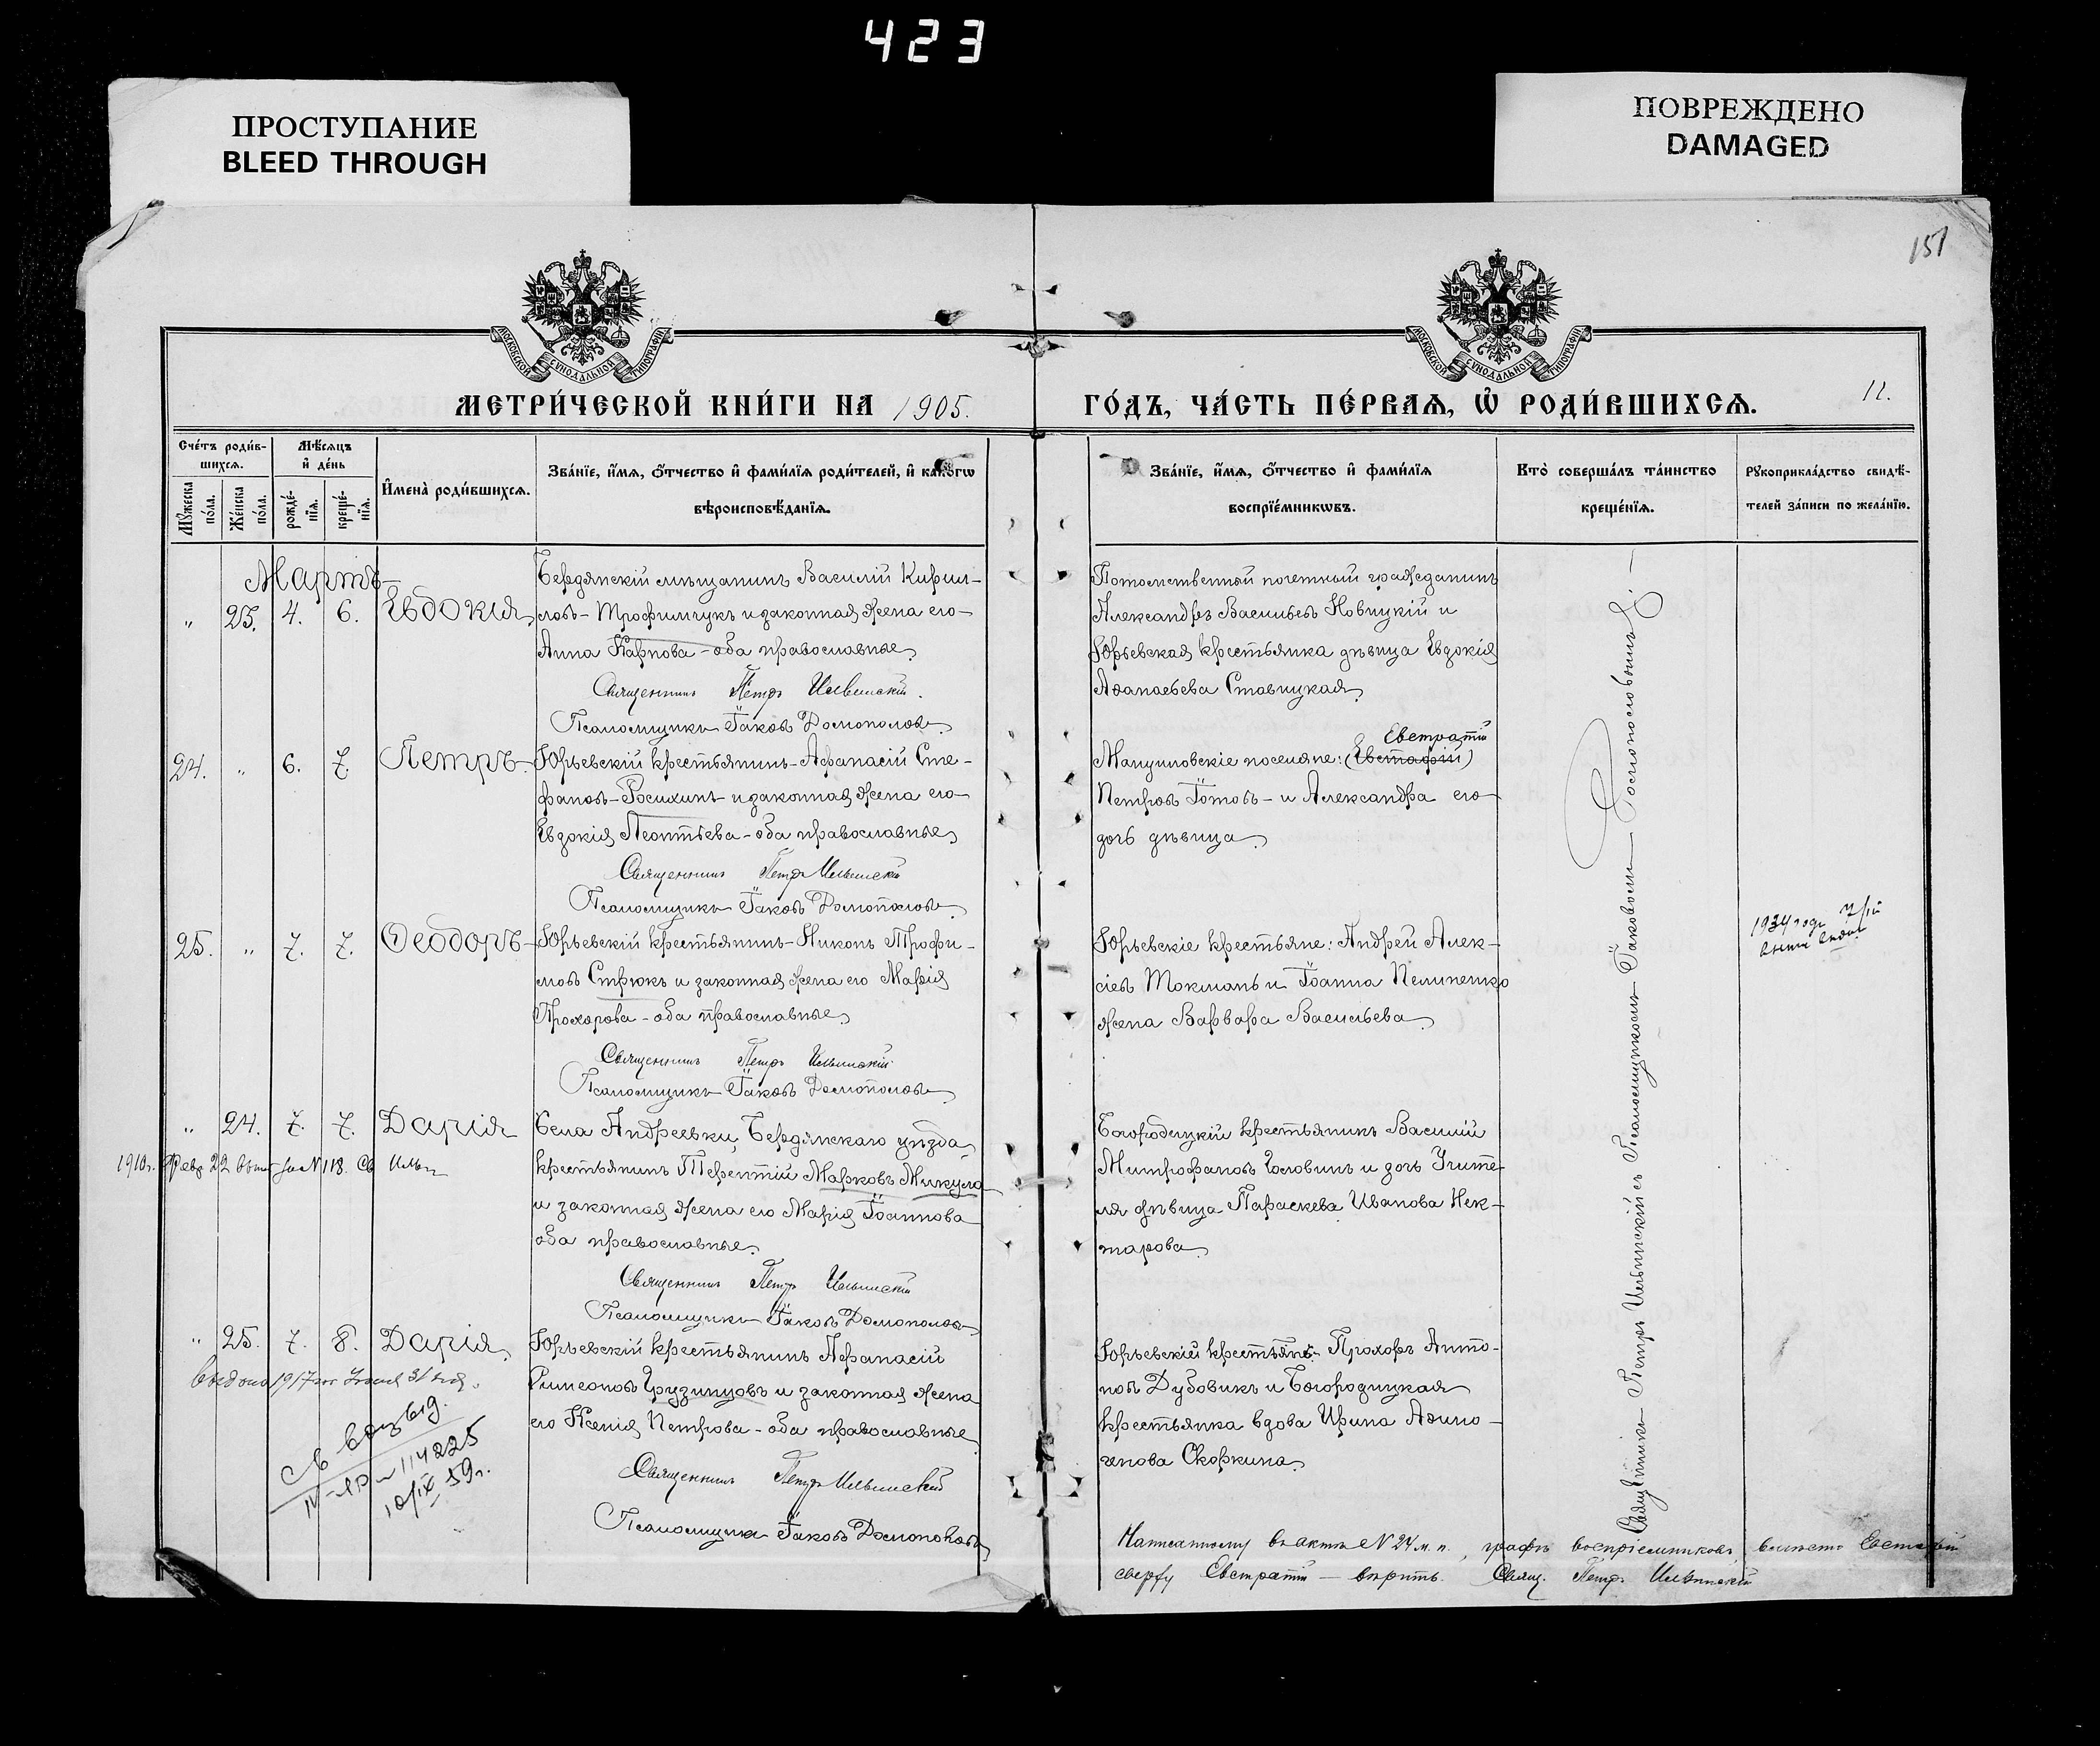 423
ПРОСТУПАНИЕ
BLEED THROUGH
ПОВРЕЖДЕНО
DAMAGED
151
МОСКОВСКОЙ СУНОДАЛЬНОЙ ТИПОГРАФІИ
МОСКОВСКОЙ СУНОДАЛЬНОЙ ТИПОГРАФІИ
МЕТРИ́ЧЕСКОЙ КНИ́ГИ НА 1905.
ГО́ДЪ, ЧА́СТЬ ПЕ́РВАѦ, Ѡ҆ РОДИ́ВШИХСѦ.
12.
Сче́тъ роди́в-
шихсѧ.
Мѣ́сѧцъ
и҆ де́нь
Мꙋ́жеска по́ла.
Же́нска по́ла.
рожде́-
нїѧ.
креще́-
нїѧ.
И҆мена̀ роди́вшихсѧ.
Зва́нїе, и҆́мѧ, ѻ҆́тчество и҆ фами́лїѧ роди́телей, и҆ како́гѡ
вѣроисповѣ́данїѧ.
Зва́нїе, и҆́мѧ, ѻ҆́тчество и҆ фами́лїѧ
воспрїе́мникѡвъ.
Кто̀ соверша́лъ та́инство
креще́нїѧ.
Рꙋкоприкла́дство свидѣ́-
телей за́писи по жела́нїю.
Мартъ
" 23. 4. 6. Евдокія
Бердянскій мѣщанинъ Василій Кирил-
ловъ - Трофимчукъ и законная жена его
Анна Карпова - оба православные
Священникъ Петръ Ильинскій.
Псаломщикъ Іаковъ Домополовъ
Потомственный почетный гражданинъ
Александръ Васильевъ Новицкій и
Юрьевская крестьянка дѣвица Евдокія
Аѳанасьева Ставицкая
24. " 6. 7. Петръ
Юрьевскій крестьянинъ - Аѳанасій Сте-
фановъ - Росихинъ и законная жена его
Евдокія Леонтьева - оба православные
Священникъ Петръ Ильинскій
Псаломщикъ Іаковъ Домополовъ
Евстратій
Мануиловскіе поселяне: (Евстафій)
Петровъ Готовъ - и Александра его
дочь дѣвица
25. " 7. 7. Ѳеодоръ
Юрьевскій крестьянинъ - Никонъ Трофи-
мовъ Стрюкъ и законная жена его Марія
Прохорова - оба православные
Священникъ Петръ Ильинскій
Псаломщикъ Іаковъ Домополовъ
Юрьевскіе крестьяне: Андрей Алек-
сіевъ Токмань и Іоанна Пелипенко
жена Варвара Васильева
1934 году
" 24. 7. 7. Дарія
1910 г. Февр. 22 за № 118. Св
Села Андреевки, Бердянскаго уѣзда
крестьянинъ Терентій Марковъ Микула
и законная жена его Марія Іоаннова
оба православные
Священникъ Петръ Ильинскій
Псаломщикъ Іаковъ Домополовъ
Богородицкій крестьянинъ Василій
Митрофановъ Головинъ и дочь Учите-
ля дѣвица Параскева Иванова Нек-
тарова
" 25. 7. 8. Дарія
1917
Юрьевскій крестьянинъ Аѳанасій
Симеоновъ Грузинцовъ и законная жена
его Ксенія Петрова - оба православные
Священникъ Петръ Ильинскій
Псаломщикъ Іаковъ Домополовъ
Юрьевскіе крестьяне - Прохоръ Анто-
новъ Дубовикъ и Богородицкая
крестьянка вдова Ирина Аѳино-
генова Скоркина
114225
10/IX 59 г.
Священникъ Петръ Ильинскій съ Псаломщикомъ Іаковомъ Домополовымъ
Написанному въ актѣ № 24 м. п., графѣ воспріемниковъ, вмѣсто Евстафій
сверху Евстратій - вѣрить. Свящ. Петръ Ильинскій